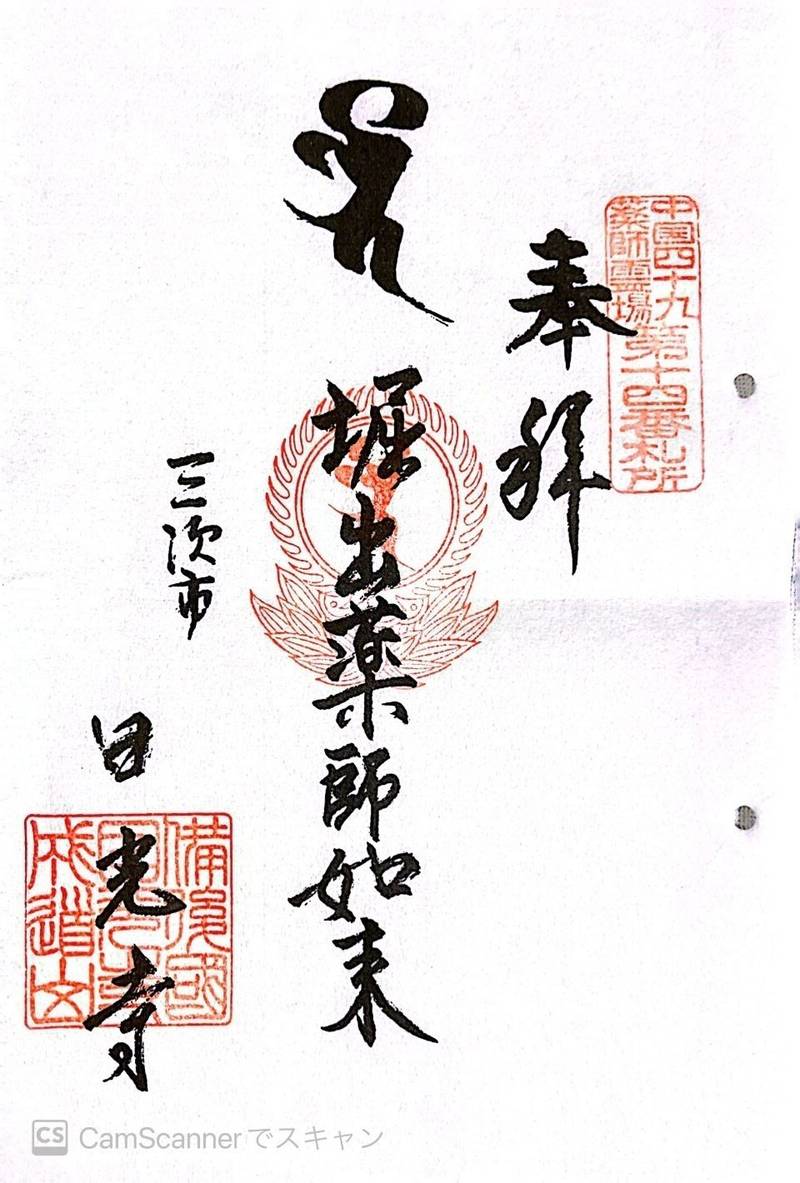 中国四十九
薬師霊場
第十四番札所
奉拝
堀出薬師如来
三次市
日光寺
備後國
成道山
CS CamScannerでスキャン